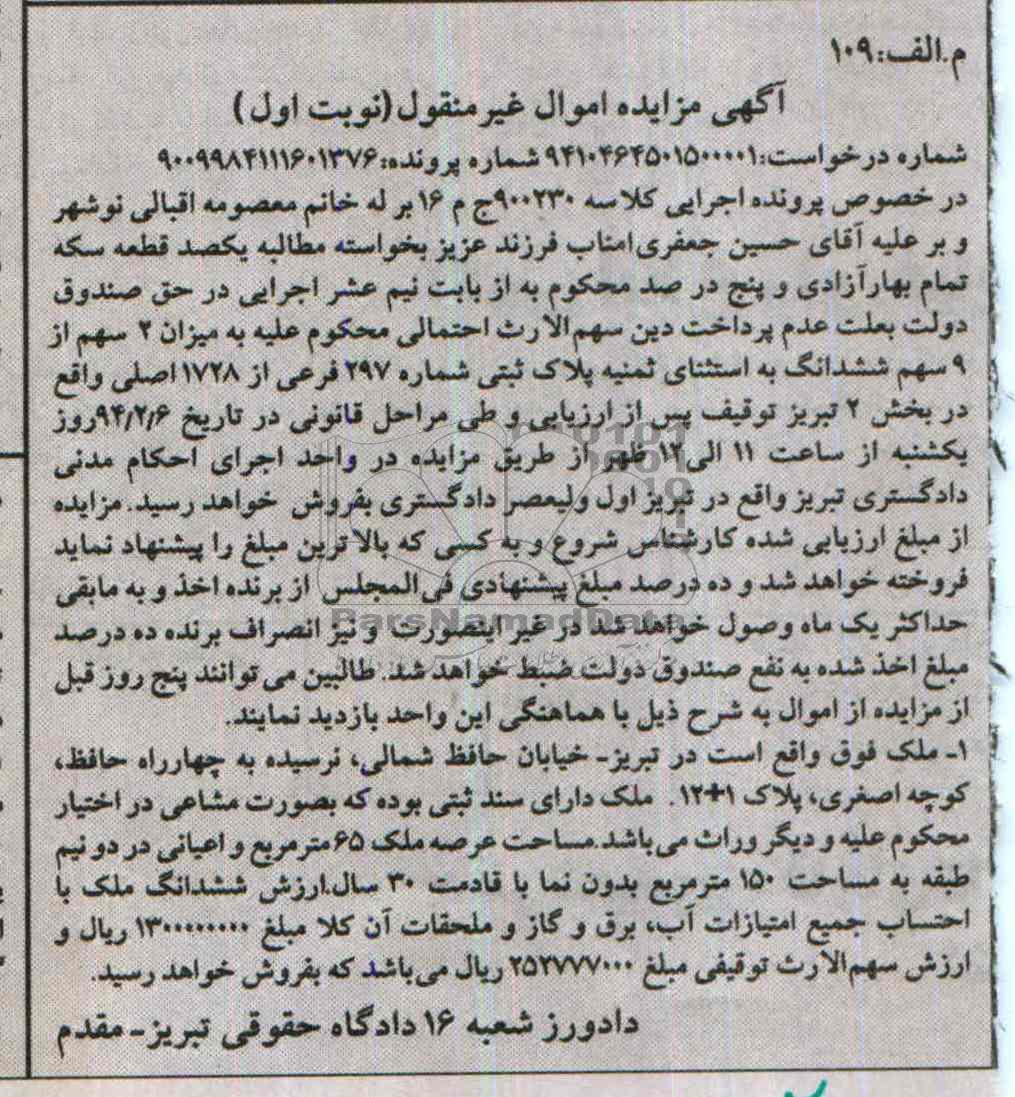 م.الف:۱۰۹
آگهی مزایده اموال غیرمنقول(نوبت اول)
شماره درخواست:۹۴۱۰۴۶۴۵۰۱۵۰۰۰۰۱ شماره پرونده:۹۰۰۹۹۸۴۱۱۱۶۰۱۳۷۶
در خصوص پرونده اجرایی کلاسه ۹۰۰۲۳۰ج م ۱۶ بر له خانم معصومه اقبالی نوشهر
و بر علیه آقای حسین جعفری امناب فرزند عزیز بخواسته مطالبه یکصد قطعه سکه
تمام بهارآزادی و پنج در صد محکوم به از بابت نیم عشر اجرایی در حق صندوق
دولت بعلت عدم پرداخت دین سهم‌الارث احتمالی محکوم علیه به میزان ۲ سهم از
۹ سهم ششدانگ به استثنای ثمنیه پلاک ثبتی شماره ۲۹۷ فرعی از ۱۷۲۸ اصلی واقع
در بخش ۲ تبریز توقیف پس از ارزیابی و طی مراحل قانونی در تاریخ ۹۴/۲/۶روز
یکشنبه از ساعت ۱۱ الی۱۲ ظهر از طریق مزایده در واحد اجرای احکام مدنی
دادگستری تبریز واقع در تبریز اول ولیعصر دادگستری بفروش خواهد رسید. مزایده
از مبلغ ارزیابی شده کارشناس شروع و به کسی که بالاترین مبلغ را پیشنهاد نماید
فروخته خواهد شد و ده درصد مبلغ پیشنهادی فی‌المجلس از برنده اخذ و به مابقی
حداکثر یک ماه وصول خواهد شد در غیر اینصورت و نیز انصراف برنده ده درصد
مبلغ اخذ شده به نفع صندوق دولت ضبط خواهد شد. طالبین می توانند پنج روز قبل
از مزایده از اموال به شرح ذیل با هماهنگی این واحد بازدید نمایند.
۱ـ ملک فوق واقع است در تبریز- خیابان حافظ شمالی، نرسیده به چهارراه حافظ،
کوچه اصغری، پلاک ۱+۱۲. ملک دارای سند ثبتی بوده که بصورت مشاعی در اختیار
محکوم علیه و دیگر وراث می‌باشد.مساحت عرصه ملک ۶۵ مترمربع و اعیانی در دو نیم
طبقه به مساحت ۱۵۰ مترمربع بدون نما با قادمت ۳۰ سال.ارزش ششدانگ ملک با
احتساب جمیع امتیازات آب، برق و گاز و ملحقات آن کلا مبلغ ۱۳۰۰۰۰۰۰۰۰ ریال و
ارزش سهم‌الارث توقیفی مبلغ ۲۵۲۷۷۷۰۰۰ ریال می‌باشد که بفروش خواهد رسید.
دادورز شعبه ۱۶ دادگاه حقوقی تبریز- مقدم
ParsNamadData